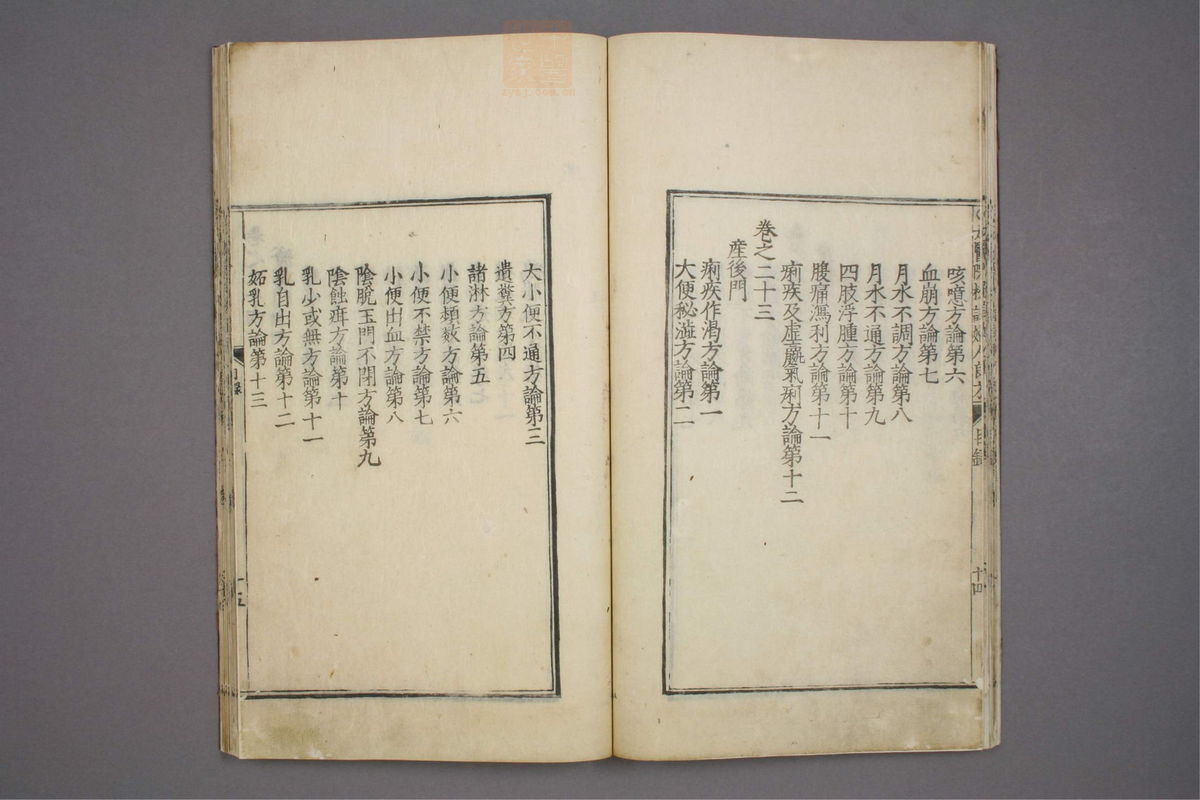 咳噫方論第六
血崩方論第七
月水不調方論第八
月水不通方論第九
四肢浮腫方論第十
腹痛瀉利方論第十一
痢疾及虛羸氣痢方論第十二
卷之二十三
産後門
痢疾作渴方論第一
大便秘澁方論第二
目錄
十四
大小便不通方論第三
遺糞方第四
諸淋方論第五
小便頻數方論第六
小便不禁方論第七
小便出血方論第八
陰脫玉門不閉方論第九
陰蝕瘡方論第十
乳少或無方論第十一
乳自出方論第十二
妬乳方論第十三
目錄
十五